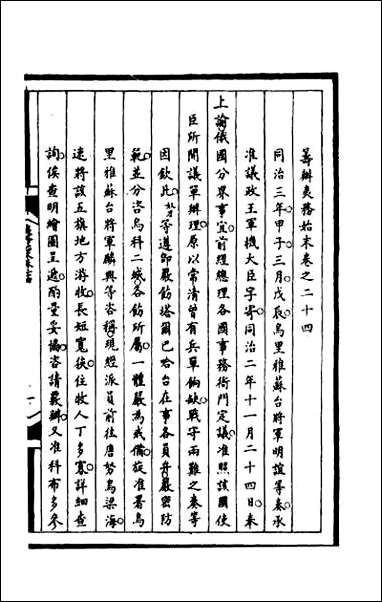 籌辦夷務始末卷之二十四
同治三年甲子三月戊辰烏里雅蘇台將軍明誼等奏承
准議政王軍機大臣字寄同治二年十一月二十四日奉
上諭俄國分界事宜前經總理各國事務衙門定議准照該國使
臣所開議單辦理原以常清曾有兵單餉缺戰守兩難之奏等
因欽此等遵即嚴飭塔爾巴哈台在事各員弁嚴密防
範並分咨烏科二城各飭所屬一體嚴為戒備旋准署烏
里雅蘇台將軍麟興等咨稱現經派員前往唐努烏梁海
速將該五旗地方游牧長短寬狹住牧人丁多寡詳細查
詢俟查明繪圖呈遞酌量妥協咨請裏辦又准科布多參